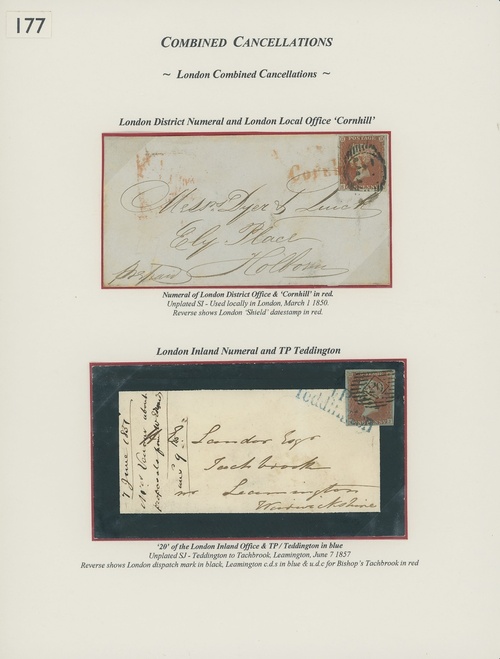 177
COMBINED CANCELLATIONS
~ London Combined Cancellations ~
London District Numeral and London Local Office 'Cornhill'
Messrs Dyer &
Ely Place
Holborn
Numeral of London District Office & 'Cornhill' in red.
Unplated SI - Used locally in London, March 1 1850.
Reverse shows London 'Shield' datestamp in red.
London Inland Numeral and TP Teddington
Teddington
7 June 1851
Landor Esqr
Tachbrook
nr Leamington
Warwickshire
'20' of the London Inland Office & TP / Teddington in blue
Unplated SJ - Teddington to Tachbrook, Leamington, June 7 1857
Reverse shows London dispatch mark in black, Leamington c.d.s in blue & u.d.c for Bishop's Tachbrook in red